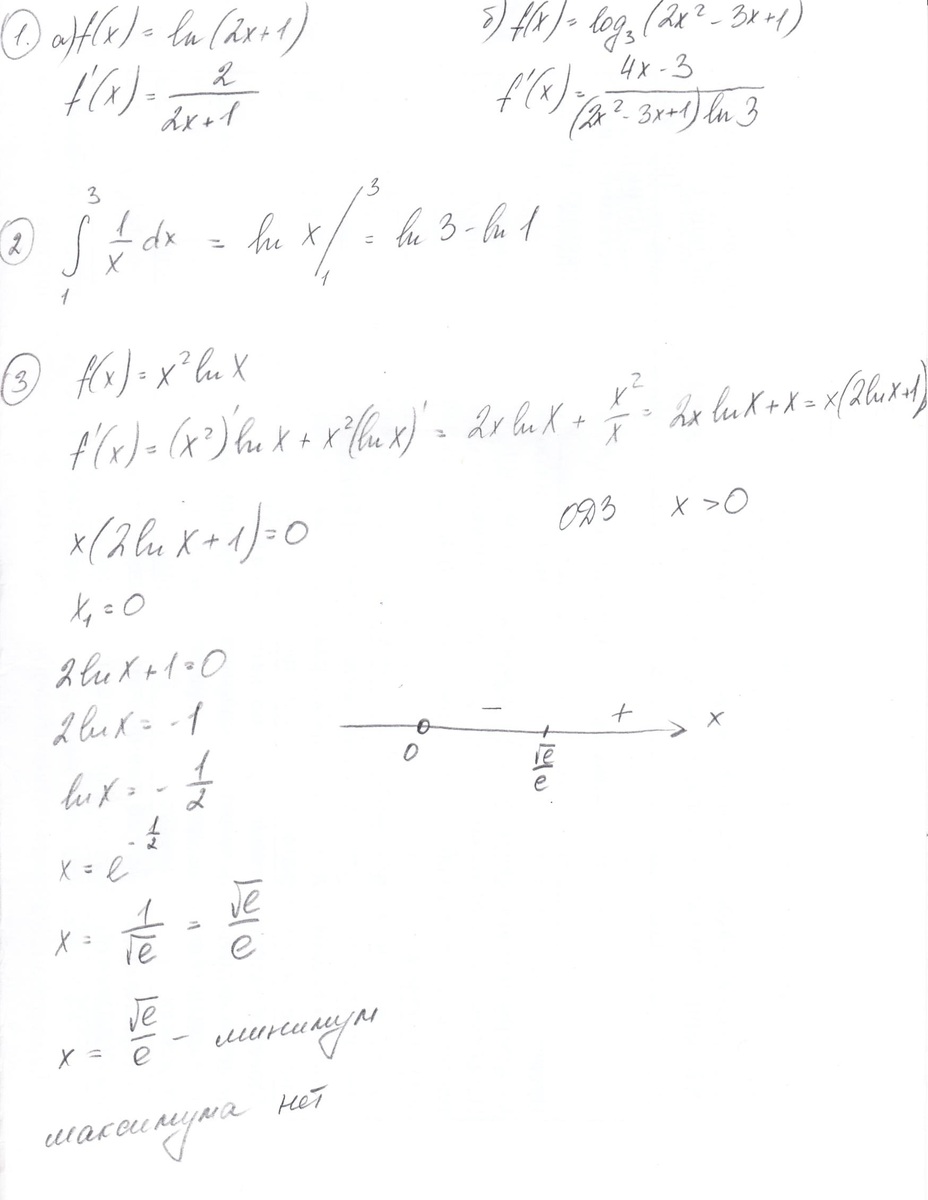 1. а) f(x) = ln(2x+1)
f'(x) = 2/(2x+1)
б) f(x) = log₃(2x² - 3x+1)
f'(x) = (4x-3)/((2x² - 3x+1) ln 3)
2 ∫₁³ 1/x dx = ln x /₁³ = ln 3 - ln 1
3 f(x) = x² ln x
f'(x) = (x²)' ln x + x²(ln x)' = 2x ln x + x²/x = 2x ln x + x = x(2ln x+1)
x(2ln x+1)=0
ОДЗ x >0
x₁ = 0
2ln x+1=0
2ln x = -1
ln x = - 1/2
x = e^(-1/2)
x = 1/√e = √e/e
- + x
0 √e/e
x = √e/e - минимум
максимума нет